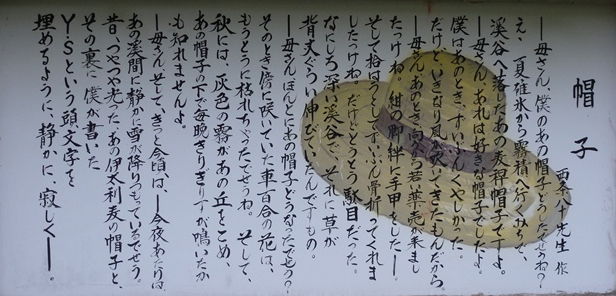 帽子
西条八十先生作
――母さん、僕のあの帽子どうしたでせうね？
え、夏碓氷から霧積へ行くみちで、
渓谷へ落したあの麦稈帽子ですよ。
――母さん、あれは好きな帽子でしたよ。
僕はあのとき、ずいぶんくやしかった。
だけど、いきなり風が吹いてきたもんだから。
――母さん、あのとき向うから若い薬売が来まし
たっけね。紺の脚絆に手甲をした――。
そして拾はうとしてずいぶん骨折ってくれま
したっけね。だけどとうとう駄目だった。
なにしろ深い渓谷で、それに草が
背丈ぐらい伸びていたんですもの。
――母さん、ほんとにあの帽子どうなったでせう？
そのとき傍に咲いていた車百合の花は、
もうとうに枯れちゃったでせうね。そして、
秋には、灰色の霧があの丘をこめ、
あの帽子の下で毎晩きりぎりすが鳴いたか
も知れませんよ。
――母さん、そして、きっと今頃は、――今夜あたりは、
あの渓間に静かに雪が降りつもっているでせう。
昔、つやつや光った、あの伊太利麦の帽子と、
その裏に僕が書いた
YSという頭文字を
埋めるように、静かに、寂しく――。